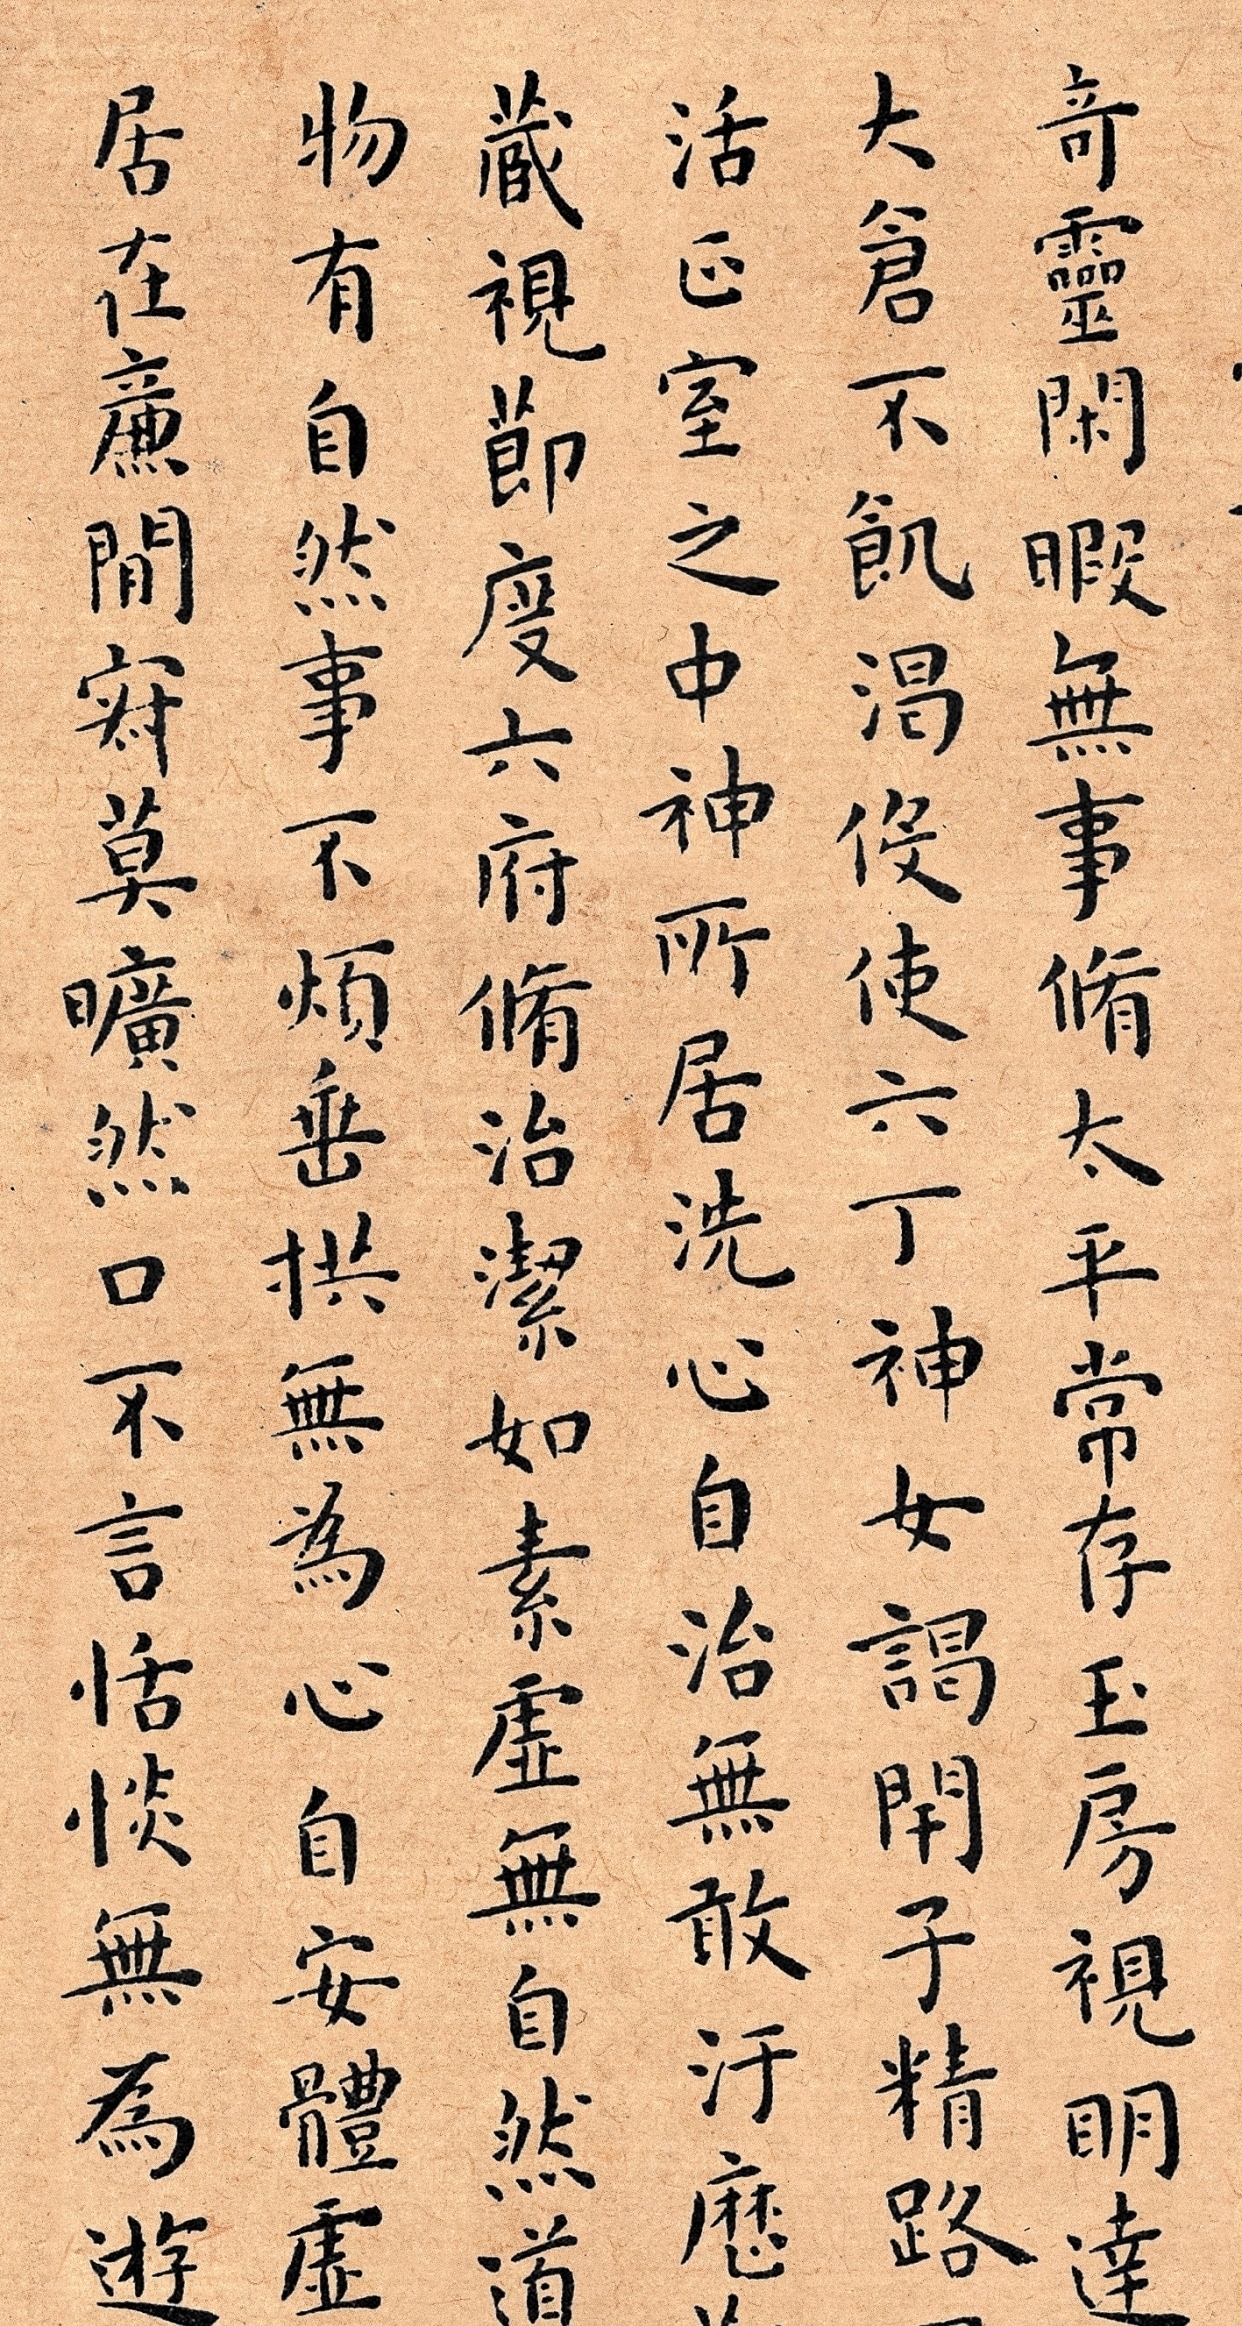 奇靈閑暇無事脩太平常存玉房視明達
大倉不飢渴役使六丁神女謁開子精路
活正室之中神所居洗心自治無敢汙歷
藏視節度六府脩治潔如素虛無自然道
物有自然事不煩垂拱無為心自安體虛
居在廉間寂莫曠然口不言恬惔無為遊